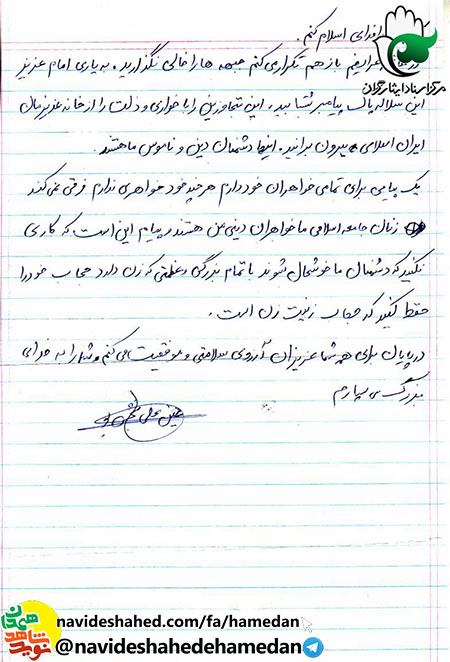 فدای اسلام کنم.
مرکز اسناد ایثارگران
باز هم تکرار می کنم جبهه ها را خالی نگذارید و به یاری امام عزیز
این سلاله پاک پیامبر بشتابید. این متجاوزین را با خواری و ذلت را از خانه عزیزمان
ایران اسلامی بیرون برانید. اینها دشمنان دین و ناموس ما هستند.
یک پیامی برای تمامی خواهران خود دارم هر چند خود خواهری ندارم فرقی نمی کند
زنان جامعه اسلامی ما خواهران دینی من هستند و پیام این است که کاری
نکنید که دشمنان ما خوشحال شوند با تمام بزرگی و عظمتی که زن دارد حجاب خود را
حفظ کنید که حجاب زینت زن است.
در پایان برای همه شما عزیزان آرزوی سلامتی و موفقیت می کنم و شما را به خدای
بزرگ می سپارم
navideshahed.com/fa/hamedan
@navideshahedehamedan
نوید شاهد همدان